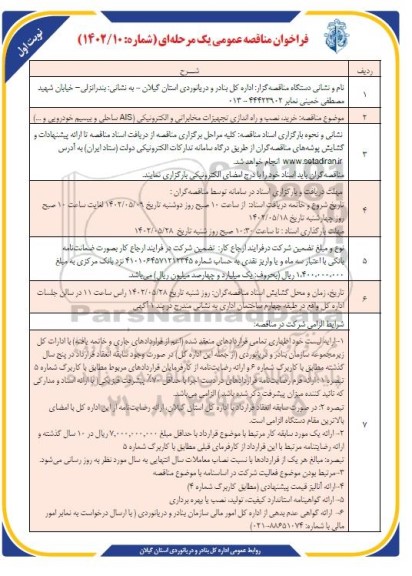 نوبت اول
فراخوان مناقصه عمومی یک مرحله‌ای (شماره: ۱۴۰۲/۱۰)
ردیف
شــرح
۱
نام و نشانی دستگاه مناقصه‌گزار: اداره کل بنادر و دریانوردی استان گیلان – به نشانی: بندرانزلی– خیابان شهید
مصطفی خمینی نمابر ۴۴۴۲۳۹۰۲ – ۰۱۳
۲
موضوع مناقصه: خرید، نصب و راه اندازی تجهیزات مخابراتی و الکترونیکی (AIS ساحلی و بیسیم خودرویی و ...)
۳
نشانی و نحوه بارگزاری اسناد مناقصه: کلیه مراحل برگزاری مناقصه از دریافت اسناد مناقصه تا ارائه پیشنهادات و
گشایش پوشه‌های مناقصه‌گران از طریق درگاه سامانه تدارکات الکترونیکی دولت (ستاد ایران) به آدرس
www.setadiran.ir انجام خواهد شد.
مناقصه‌گران باید اسناد خود را با درج امضای الکترونیکی بارگزاری نمایند.
۴
مهلت دریافت و بارگزاری اسناد در سامانه توسط مناقصه‌گران:
تاریخ شروع و خاتمه دریافت اسناد: از ساعت ۱۰ صبح روز دوشنبه تاریخ ۱۴۰۲/۰۵/ لغایت ساعت ۱۰ صبح
روز چهارشنبه تاریخ ۱۴۰۲/۰۵/۱۸
مهلت بارگذاری اسناد: تا ساعت ۱۰:۳۰ صبح روز شنبه تاریخ ۱۴۰۲/۰۵/۲۸
۵
نوع و مبلغ تضمین شرکت در فرایند ارجاع کار: تضمین شرکت در فرایند ارجاع کار بصورت ضمانت‌نامه
بانکی با اعتبار سه ماه و یا واریز نقدی به حساب شماره نزد بانک مرکزی به مبلغ
۱،۴۰۰،۰۰۰،۰۰۰ ریال (بحروف: یک میلیارد و چهارصد میلیون ریال) می‌باشد.
۶
تاریخ، زمان و محل گشایش اسناد مناقصه‌گران: روز شنبه تاریخ ۱۴۰۲/۰۵/۲۸ راس ساعت ۱۱ در سالن جلسات
اداره کل واقع در طبقه چهارم ساختمان اداری به نشانی مندرج در بند ۱ آگهی
۷
شرایط الزامی شرکت در مناقصه:
۱– ارائه لیست خود اظهاری تمامی قراردادهای منعقد شده (اعم از قراردادهای جاری و خاتمه یافته) با ادارات کل
زیرمجموعه سازمان بنادر و دریانوردی (از جمله این اداره کل) در صورت وجود سابقه انعقاد قرارداد در پنج سال
گذشته مطابق با کاربرگ شماره ۶ و ارائه رضایت‌نامه از کارفرمایان قراردادهای مربوط مطابق با کاربرگ شماره ۵
که تائید کننده میزان پیشرفت ذکر شده باشد) الزامی می‌باشد.
تبصره ۲: در صورت سابقه انعقاد قرارداد با اداره کل استان گیلان، ارائه رضایت‌نامه از این اداره کل با امضای
بالاترین مقام دستگاه الزامی است.
۲– ارائه یک مورد سابقه کار مرتبط با موضوع قرارداد با حداقل مبلغ ۷،۰۰۰،۰۰۰،۰۰۰ ریال در ۱۰ سال گذشته و
ارائه رضایتنامه مرتبط با این قرارداد از کارفرمای قبلی مطابق با کاربرگ شماره ۵
تبصره: مبالغ هر یک از قراردادها با نسبت نصاب معاملات سال انتهایی به سال مورد نظر به روز رسانی می‌شود.
۳–مرتبط بودن موضوع فعالیت شرکت در اساسنامه با موضوع مناقصه
۴–ارائه آنالیز قیمت پیشنهادی (مطابق کاربرگ شماره ۴)
۵– ارائه گواهینامه استاندارد کیفیت، تولید، نصب یا بهره برداری
۶– ارائه گواهی عدم بدهی از اداره کل امور مالی سازمان بنادر و دریانوردی ( با ارسال درخواست به نمابر امور
مالی با شماره: ۸۸۶۵۱۰۷۴–۰۲۱)
روابط عمومی اداره کل بنادر و دریانوردی استان گیلان
ParsNamadData